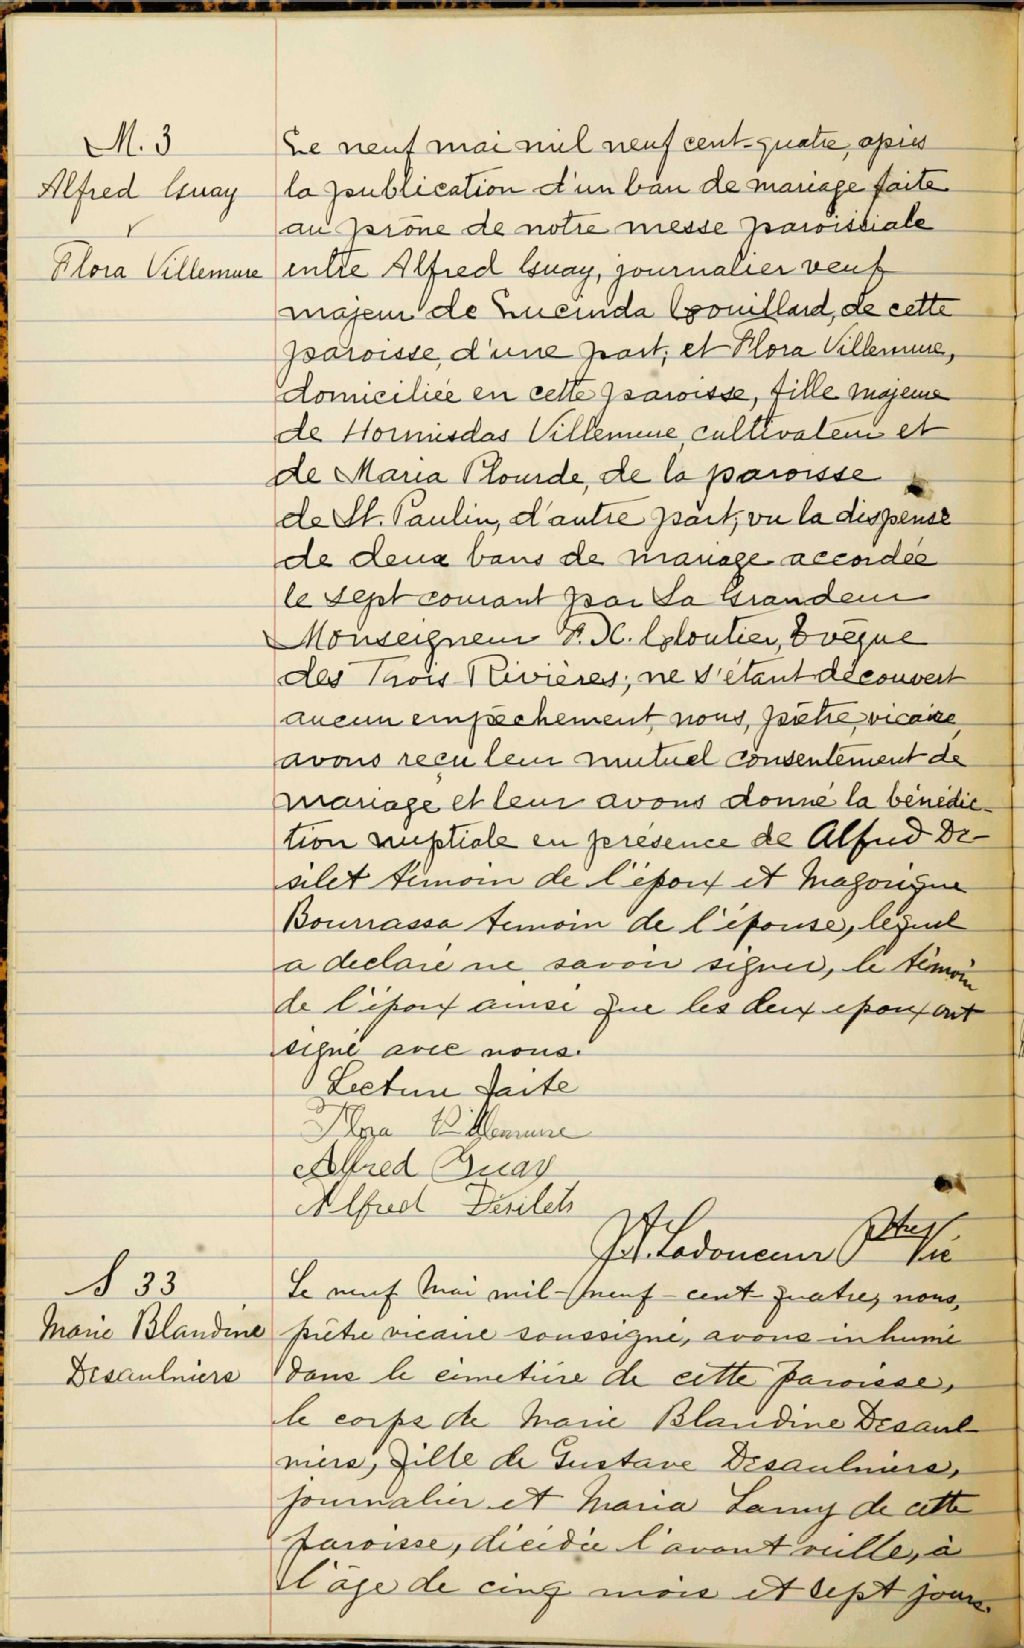 M. 3
Alfred Guay
&
Flora Villemure
Le neuf mai mil neuf cent-quatre, après
la publication d'un ban de mariage faite
au prône de notre messe paroissiale
entre Alfred Guay, journalier veuf
majeur de Lucinda Grouillard, de cette
paroisse, d'une part; et Flora Villemure,
domiciliée en cette paroisse, fille majeure
de Hormisdas Villemure, cultivateur et
de Maria Plourde, de la paroisse
de St. Paulin, d'autre part; vu la dispense
de deux bans de mariage accordée
le sept courant par Sa Grandeur
Monseigneur F. X. Cloutier, Evêque
des Trois Rivières; ne s'étant découvert
aucun empêchement, nous, prêtre, vicaire,
avons reçu leur mutuel consentement de
mariage et leur avons donné la bénédic-
tion nuptiale en présence de Alfred De-
silet témoin de l'époux et Magorigue
Bourrassa temoin de l'épouse, lequel
a declaré ne savoir signer, le témoin
de l'époux ainsi que les deux epoux ont
signé avec nous.
Lecture faite
Flora Villemure
Alfred Guay
Alfred Désilets
J. A. Ladouceur Ptre Vic
S 33
Marie Blandine
Desaulniers
Le neuf Mai mil-neuf-cent-quatre, nous,
prêtre vicaire soussigné, avons inhumé
dans le cimetière de cette paroisse,
le corps de Marie Blandine Desaul-
niers, fille de Gustave Desaulniers,
journalier et Maria Lamy de cette
paroisse, décédée l'avant veille, à
l'âge de cinq mois et sept jours.